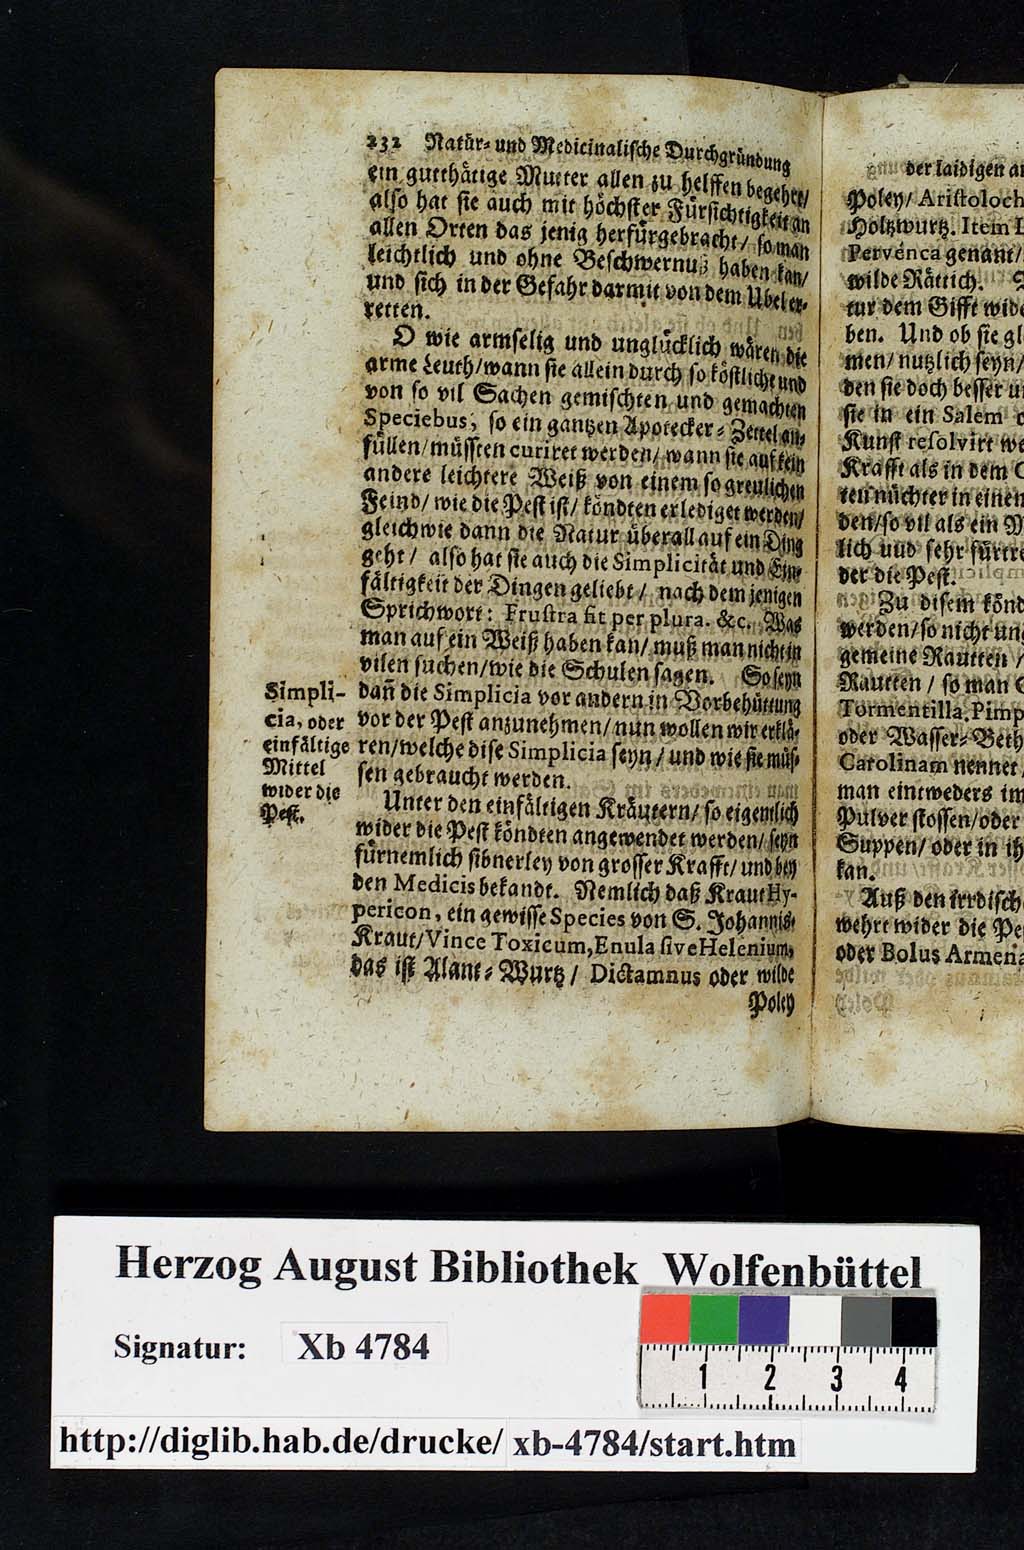 232 Natür- und Medicinalische Durchgründung
ein gutthätige Mutter allen zu helffen begehrt/
also hat sie auch mit höchster Fürsichtigkeit an
allen Orten das jenig herfürgebracht/ so man
leichtlich und ohne Beschwernuß haben kan/
und sich in der Gefahr darmit von dem Ubel er-
retten.
O wie armselig und unglücklich wären die
arme Leuth/wann sie allein durch so köstliche und
von so vil Sachen gemischten und gemachten
Speciebus, so ein gantzen Apotecker-Zettel an-
füllen/müssten curiret werden/wann sie auf kein
andere leichtere Weiß von einem so greulichen
Feind/ wie die Pest ist/ köndten erlediget werden/
gleichwie dann die Natur überall auf ein Ding
geht/ also hat sie auch die Simplicität und Ein-
fältigkeit der Dingen geliebt/ nach dem jenigen
Sprichwort: Frustra fit per plura. &c. Was
man auf ein Weiß haben kan/ muß man nicht in
vilen suchen/wie die Schulen sagen. So seyn
dañ die Simplicia vor andern in Vorbehüttung
vor der Pest anzunehmen/nun wollen wir erklä-
ren/welche dise Simplicia seyn/und wie sie müs-
sen gebraucht werden.
Simpli-
cia, oder
einfältige
Mittel
wider die
Pest.
Unter den einfältigen Kräutern/ so eigentlich
wider die Pest köndten angewendet werden/ seyn
fürnemlich sibnerley von grosser Krafft/ und bey
den Medicis bekandt. Nemlich daß Kraut Hy-
pericon, ein gewisse Species von S. Johannis-
Kraut/Vince Toxicum, Enula sive Helenium,
das ist Alant-Wurtz/ Dictamnus oder wilde
Poley
der laidigen
Poley/ Aristoloch
Holtzwurtz. Item
Pervenca genant/
wilde Rättich.
tur dem Gifft wide
ben. Und ob sie gl
men/ nutzlich seyn/
den sie doch besser
sie in ein Salem
Kunst resolvirt we
Krafft als in dem
ten nüchter in einen
den/so vil als ein
lich und sehr fürtre
der die Pest.
Zu disem könd
werden/so nicht ung
gemeine Rautten /
Rautten / so man
Tormentilla, Pimp
oder Wasser-Beth
Carolinam nennet,
man eintweders im
Pulver stossen/oder
Suppen/ oder in ih
kan.
Auß den irrdische
wehrt wider die Pe
oder Bolus Armena
Herzog August Bibliothek Wolfenbüttel
Signatur: Xb 4784
1 2 3 4
http://diglib.hab.de/drucke/ xb-4784/start.htm